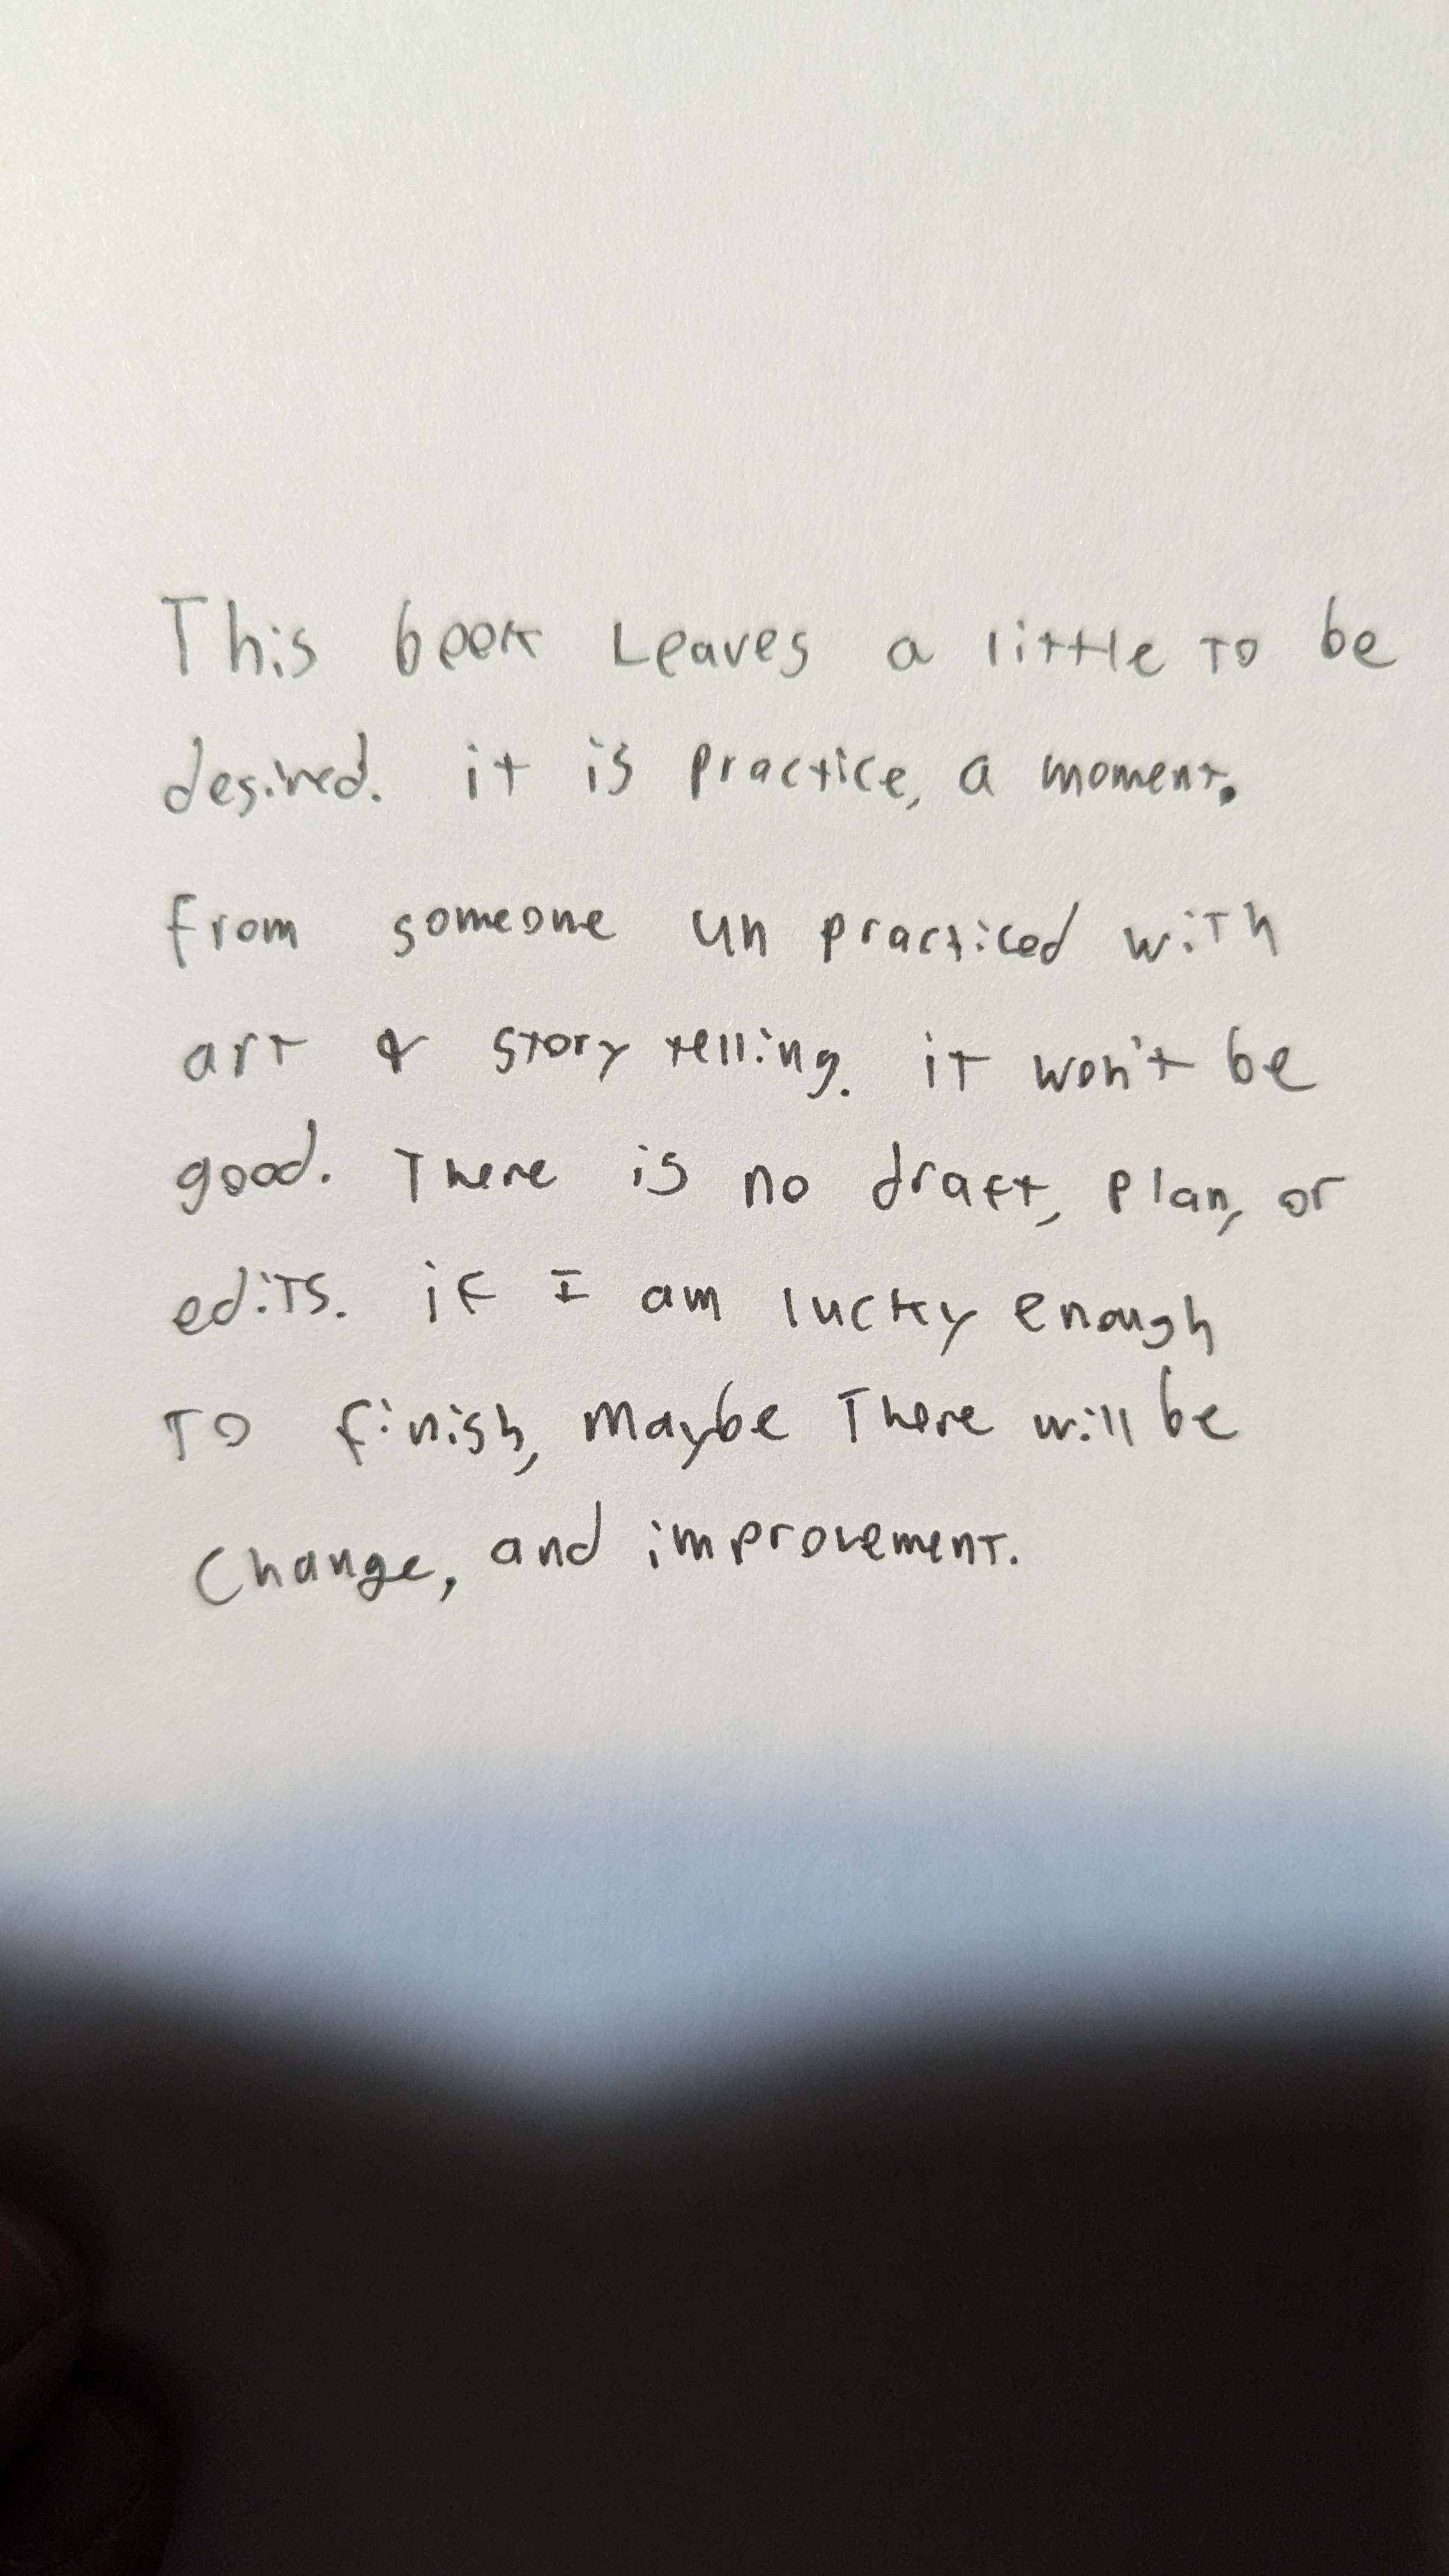 This book Leaves a little to be
desired. it is practice, a moment.
from someone un practiced with
art & story telling. it won't be
good. There is no draft, plan, or
edits. if I am lucky enough
To finish, maybe There will be
Change, and improvement.